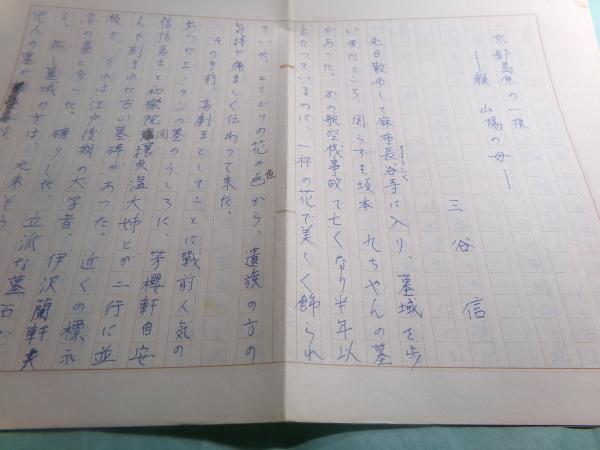 京都島原の一夜
―頼 山陽の母―
三谷 信
先日散歩して麻布長谷寺に入り、墓域を歩
いまたところ、図らずも坂本 九ちゃんの墓
があった。あの航空機事故で亡くなり半年以
上たっているのに、一杯の花で美しく飾られ
ていた。とりどりの花の色から、遺族の方の
気持が痛ましく伝わって来た。
その手前、喜劇王としてことに戦前人気の
あったエノケンの墓のうしろに、芳櫻軒自安
信恬居士と和樂院 室温大姉とが二行に並
んだ刻まれた古い墓碑があった。近くの標示
板で、それは江戸後期の大学者、伊沢蘭軒夫
妻の墓と分った。確りした、立派な墓石だ
る。然し墓域の方は、元来そう
他人の墓が